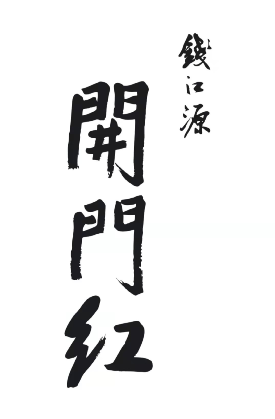 錢江源
開門红